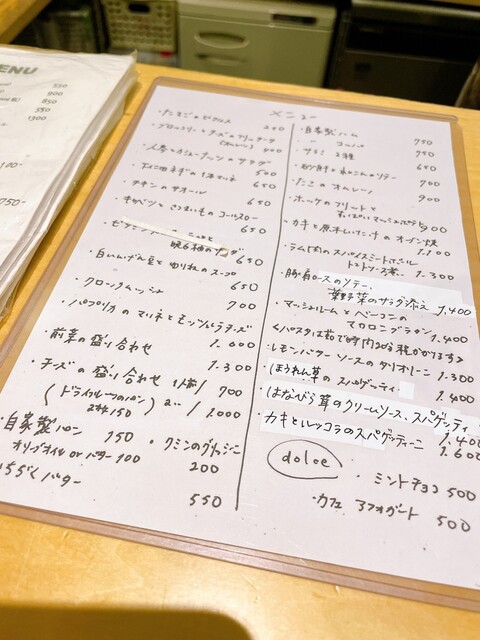 MENU
550
900
850
550
1300
メニュー
・たまごのピクルス
・ブロッコリーとチーズの
・人参と
500
650
・チキンのサオール
650
・キャベツとさつまいものコールスロー
650
650
・白いんげん豆と切り花のスープ
650
・クロックムッシュ
700
・パプリカのマリネとモッツァレラチーズ
1.000
・前菜の盛り合わせ
1.300
・チーズの盛り合わせ 1人前/700
(ドライフルーツのパン) 2〃/1.000
2枚150
・自家製パン 150
オリーブオイル or バター 100
・クミンのグリッシーニ
200
いちぢくバター
550
・自家製ハム
750
コッパ
950
・サラミ 2種
650
・砂肝ときのこのソテー
900
・たこのオムレツ
900
・ホッケのフリット
900
・カキと原木しいたけのオーブン焼
1.100
・ラム肉のスパイスミートボール
トマトソース煮
1.300
・豚肩ロースのソテー
葉野菜のサラダ添え 1.400
・マッシュルームとベーコンの
マカロニグラタン 1.400
・レモンバターソースのタリオリーニ
1.300
・ほうれん草のスパゲッティ
1.400
・はなびら茸のクリームソース、スパゲッティ
1.400
・カキとルッコラのスパゲッティーニ
1.600
dolce
・ミントチョコ 500
・カフェ アフォガート 500